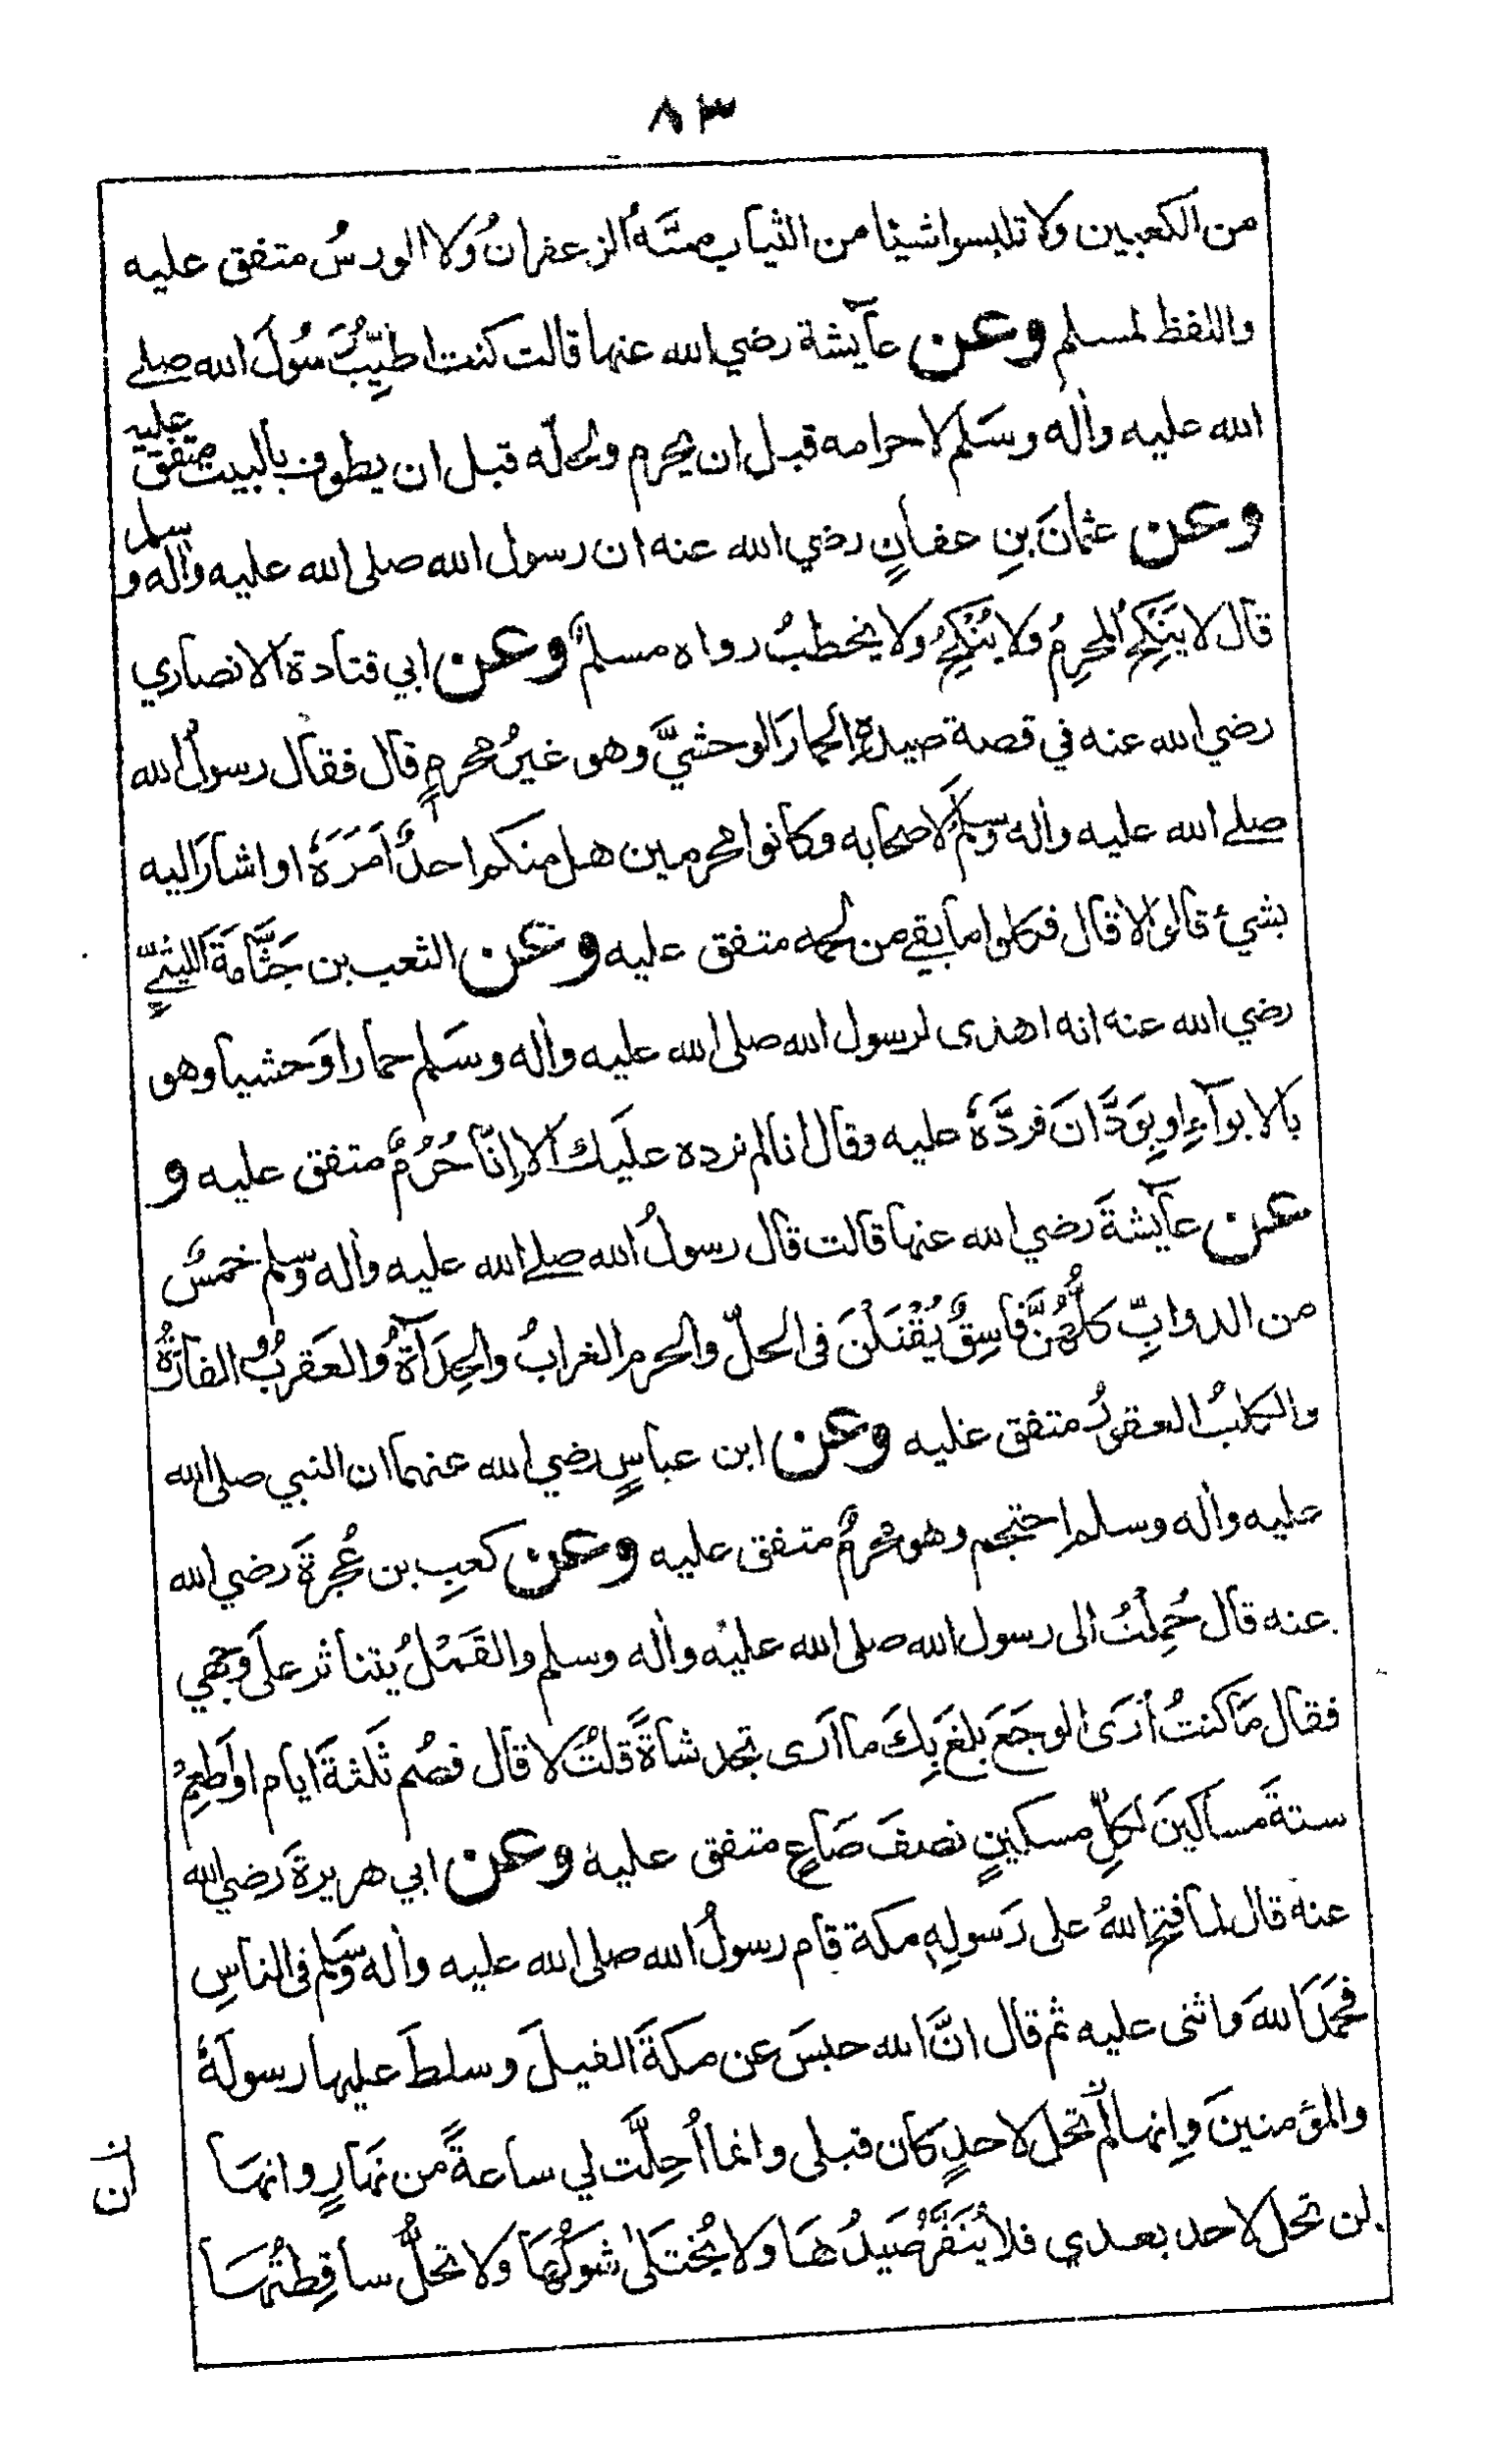 ٨٣
من الكعبين ولا تلبسوا شيئا من الثياب مسَّهُ الزعفرانُ ولا الورسُ متفق عليه
واللفظ لمسلم وعن عآيشة رضي الله عنها قالت كنت اطيِّبُ رسُولَ الله صلے
الله عليه واٰله وسَلم لاحرامه قبل ان يحرم ولحلّه قبل ان يطوف بالبيت متفق عليه
وعن عثمانَ بنِ عفانٍ رضي الله عنه ان رسول الله صلى الله عليه واٰله وسلم
قال لا يَنْكِحُ المحرِمُ ولا يُنْكِحُ ولا يخطبُ رواه مسلمٌ وعن ابي قتادة الانصاري
رضي الله عنه في قصة صيده الحمارَ الوحشيَّ وهو غيرُ محرمٍ قال فقال رسولُ الله
صلے الله عليه واٰله وسلم لاصحابه وكانوا محرمين هل منكم احدٌ اَمَرَهٗ او اشارَ اليه
بشيءٍ قالوا لا قال فكلوا ما بقے من لحمه متفق عليه وعن الثعب بن جَثَّامَةَ الليثيِّ
رضي الله عنه انه اهدى لرسول الله صلى الله عليه واٰله وسَلم حمارا وَحشيا وهو
بالابوآءِ او بِوَدَّانَ فردَّهٗ عليه وقال انا لم نرده علَيك الا اِنّا حُرُمٌ متفق عليه و
عن عآيشةَ رضي الله عنها قالت قال رسولُ الله صلے الله عليه واٰله وسلم خمسٌ
من الدوابِّ كلُّهُنَّ فاسِقٌ يُقْتَلْنَ فى الحلّ والحرم الغرابُ والحِدَآةُ والعَقربُ والفارَةُ
والكلبُ العقورُ متفق عليه وعن ابن عباسٍ رضي الله عنهما ان النبي صلى الله
عليه واٰله وسلم احتجم وهو محرمٌ متفق عليه وعن كعبِ بن عُجرةَ رضي الله
عنه قال حُمِلْتُ الى رسول الله صلى الله عليْه واٰله وسلم والقَمْلُ يتناثر علَى وجهي
فقال مَا كنتُ اُرَى الوجَعَ بلغَ بِكَ ما اَرى تجد شاةً قلتُ لا قال فصُم ثَلثةَ ايام او اَطعِمْ
ستةَ مساكينَ لكلِّ مسكينٍ نصفَ صَاعٍ متفق عليه وعن ابي هريرةَ رضي الله
عنه قال لما فتح اللهُ على رَسولِهٖ مكة قام رسولُ الله صلى الله عليه واٰله وسَلم فى الناسِ
فحَمَدَ اللهَ واثنى عليه ثم قال انَّ الله حبسَ عن مكةَ الفيلَ وسلطَ عليها رسولَهٗ
والمؤمنينَ وِانها لم تحل لاحدٍ كان قبلى وانما اُحِلَّت لي ساعةً من نهارٍ وانها
لن تحل لاحد بعدي فلا يُنَفَّرُ صَيدُهَا ولا يُختَلىٰ شوكُهَا ولا تحلُّ ساقِطتُهَا